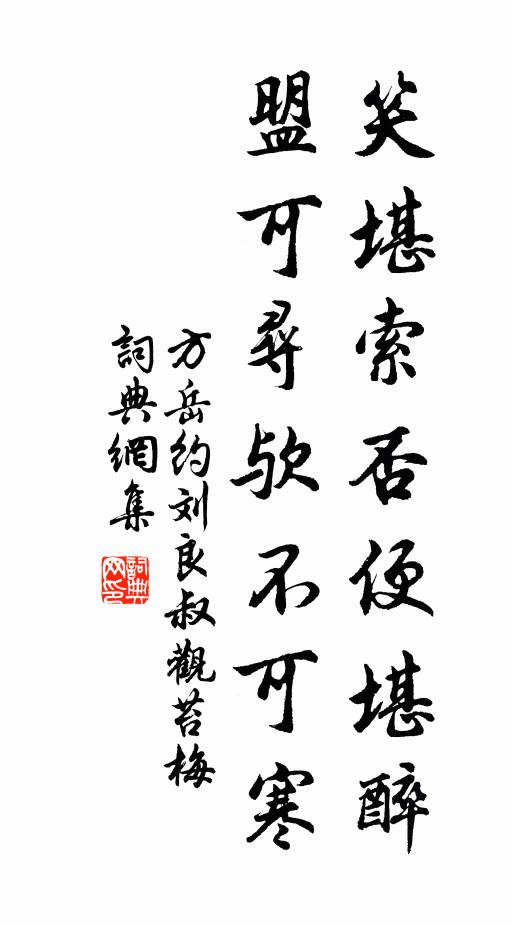 笑堪索否便堪醉
盟可尋欤不可寒
方岳约刘良叔觀苔梅
詞典網集
詞典网印